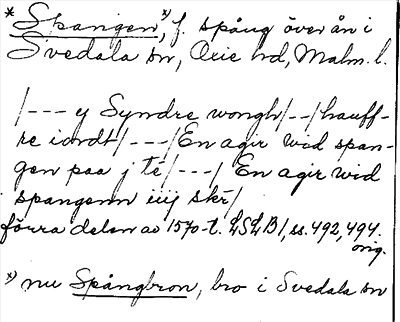 * Spangen,*) f. spång över ån i
Svedala sn, Oxie hd, Malm. l.
/--- ij Syndre wongh/--/hauff-
re iordt/---/En agir wid span-
gen paa j té/---/ En agir wid
spangenn iiij skr/
förra delen av 1570-t. LSLB1, ss. 492, 494.
orig.
*) nu Spångbron, bro i Svedala sn